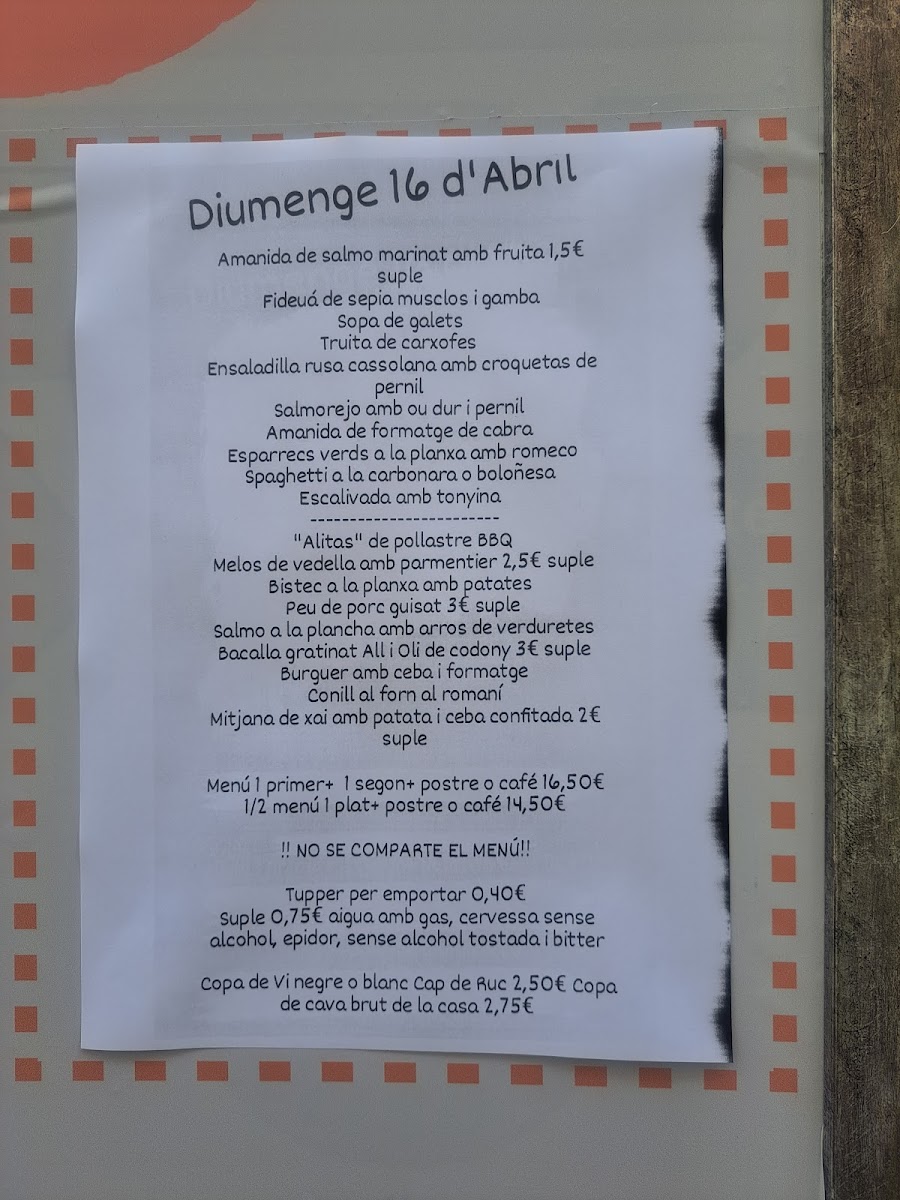 Diumenge 16 d'Abril
Amanida de salmo marinat amb fruita 1,5€
suple
Fideuá de sepia musclos i gamba
Sopa de galets
Truita de carxofes
Ensaladilla rusa cassolana amb croquetas de
pernil
Salmorejo amb ou dur i pernil
Amanida de formatge de cabra
Esparrecs verds a la planxa amb romeco
Spaghetti a la carbonara o boloñesa
Escalivada amb tonyina
------------------------
"Alitas" de pollastre BBQ
Melos de vedella amb parmentier 2,5€ suple
Bistec a la planxa amb patates
Peu de porc guisat 3€ suple
Salmo a la plancha amb arros de verduretes
Bacalla gratinat All i Oli de codony 3€ suple
Burguer amb ceba i formatge
Conill al forn al romaní
Mitjana de xai amb patata i ceba confitada 2€
suple
Menú 1 primer+ 1 segon+ postre o café 16,50€
1/2 menú 1 plat+ postre o café 14,50€
!! NO SE COMPARTE EL MENÚ!!
Tupper per emportar 0,40€
Suple 0,75€ aigua amb gas, cervessa sense
alcohol, epidor, sense alcohol tostada i bitter
Copa de Vi negre o blanc Cap de Ruc 2,50€ Copa
de cava brut de la casa 2,75€